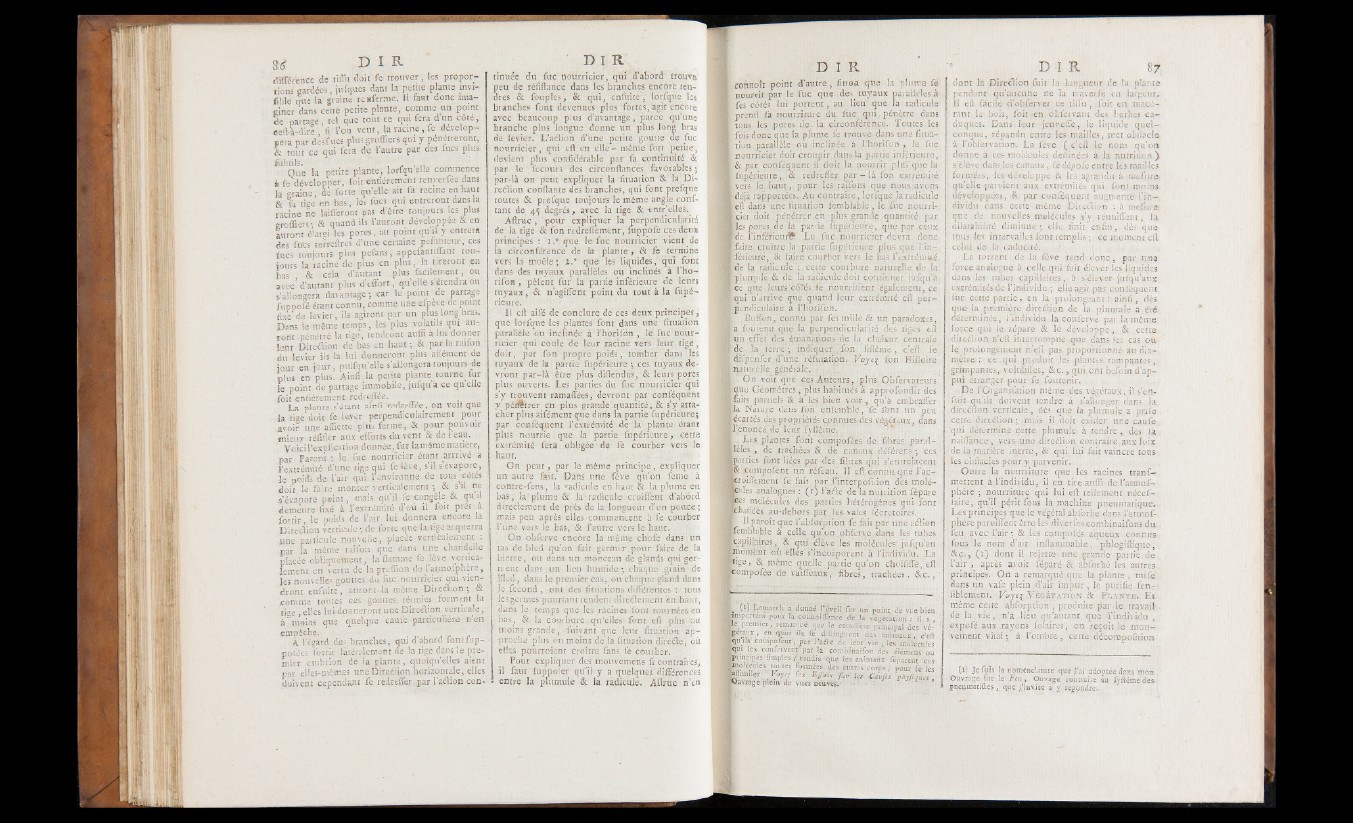 86 D I R
différence de tissu doit se trouver, les propor-
tions gardées, jusques dans la petite plante invi-
sible que la graine renferme. Il faut donc ima-
giner dans cette petite plante, comme un point
de partage, tel que tout ce qui sera d'un côté,
c'est-à-dire, si l'on veut, la racine, se dévelop-
pera par des sucs plus grossiers qui y pénétreront,
& tout ce qui sera de l'autre par des sucs plus
subtils.
Que la petite plante, lorsqu'elle commence
à se développer, soit entiérement renversée dans
la graine, de sorte qu'elle ait sa racine en haut
& sa tige en bas, les sucs qui entreront dans la
racine ne laisseront pas d'être toujours les plus
grossiers; & quand ils l'auront développée & en
auront élargi les pores, au point qu'il y entrera
des sucs terrestres d'une certaine pesanteur, ces
sucs toujours plus pesans, appesantissant tou-
jours la racine de plus en plus, la tireront en
bas, & cela d'autant plus facilement, ou
avec d'autant plus d'effort, qu'elle s'étendra ou
s'allongera davantage; car le point de partage
supposé étant connu, comme une espèce de point
fixe de levier, ils agiront par un plus long bras.
Dans le même temps, les plus volatils qui au-
ront pénétré la tige, tendront aussi à lui donner
leur Direction de bas en haut; & par la raison
du levier ils la lui donneront plus aisément de
jour en jour, puisqu'elle s'allongera toujours de
plus en plus. Ainsi la petite plante tourne sur
le point de partage immobile, jusqu'à ce qu'elle
soit entièrement redressée.
La plante s'étant ainsi redressée, on voit que
la tige doit se lever perpendiculairement pour
avoir une assiette plus ferme, & pour pouvoir
mieux résister aux efforts du vent & de l'eau.
Voici l'explication donnée, sur la même matière,
par Parent : le suc nourricier étant arrivé à
l'extrémité d'une tige qui se lève, s'il s'évapore,
le poids de l'air qui l'environne de tous côtés
doit le faire monter verticalement; & s'il ne
s'évapore point, mais qu'il se congèle & qu'il
demeure fixé à l'extrémité d'où il soit prêt à
sortir, le poids de l'air lui donnera encore la
Direction verticale; de sorte que la tige acquerra
une particule nouvelle, placée verticalement :
par la même raison que dans une chandelle
placée obliquement, la flamme se lève vertica-
lement en vertu de la pression de l'atmosphère,
les nouvelles gouttes du suc nourricier qui vien-
dront ensuite, auront la même Direction; &
comme toutes ces gouttes réunies forment la
tige, elles lui donneront une Direction verticale,
à moins que quelque cause particulière n'en
empêche.
A l'égard des branches, qui d'abord sont sup-
posées sortir latéralement de la tige dans le pre-
mier embrion de la plante, quoiqu'elles aient
par elles-mêmes une Direction horizontale, elles
doivent cependant se redresser par l'action con-
D I R
tinuée du suc nourricier, qui d'abord trouve
peu de résistance dans les branches encore ten-
dres & souples, & qui, ensuite, lorsque les
branches sont devenues plus fortes, agit encore
avec beaucoup plus d'avantage, parce qu'une
branche plus longue donne un plus long bras
de levier. L'action d'une petite goutte de suc
nourricier, qui est en elle-même fort petite,
devient plus considérable par sa continuité &
par le secours des circonstances favorables;
par-là on peut expliquer la situation & la Di-
rection constante des branches, qui font presque
toutes & presque toujours le même angle cons-
tant de 45 degrés, avec la tige & entr'elles.
Astruc, pour expliquer la perpendicularité
de la tige & son redressement, suppose ces deux
principes : 1.° que le suc nourricier vient de
la circonférence de la plante, & se termine
vers la moële; 2.° que les liquides, qui sont
dans des tuyaux parallèles ou inclinés à l'ho-
rison, pèsent sur la partie inférieure de leurs
tuyaux, & n'agissent point du tout à la supé-
rieure.
Il est aisé de conclure de ces deux principes,
que lorsque les plantes sont dans une situation
parallèle ou inclinée à l'horison, le suc nour-
ricier qui coule de leur racine vers leur tige,
doit, par son propre poids, tomber dans les
tuyaux de la partie supérieure; ces tuyaux de-
vront par-là être plus distendus, & leurs pores
plus ouverts. Les parties du suc nourricier qui
s'y trouvent ramassées, devront par conséquent
y pénétrer en plus grande quantité, & s'y atta-
cher plus aisément que dans la partie supérieure;
par conséquent l'extrémité de la plante étant
plus nourrie que la partie supérieure, cette
extrémité sera obligée de se courber vers le
haut.
On peut, par le même principe, expliquer
un autre fait. Dans une fève qu'on sème à
contre-sens, la radicule en haut & la plume en
bas, la plume & la radicule croissent d'abord
directement de près de la longueur d'un pouce;
mais peu après elles commencent à se courber
l'une vers le bas, & l'autre vers le haut.
On observe encore la même chose dans un
tas de bled qu'on fait germer pour faire de la
bierre, ou dans un monceau de glands qui ger-
ment dans un lieu humide; chaque grain de
bled, dans le premier cas, ou chaque gland dans
le second, ont des situations différentes : tous
les germes pourtant tendent directement en haut,
dans le temps que les racines sont tournées en
bas, & la courbure qu'elles font est plus ou
moins grande, suivant que leur situation ap-
proche plus ou moins de la situation directe, où
elles pourroient croître sans se courber.
Pour expliquer des mouvemens si contraires,
il faut supposer qu'il y a quelques différences
entre la plumule & la radicule. Astruc n'en
D I R
connoît point d'autre, sinon que la plume se
nourrit par le suc que des tuyaux parallèles à
ses côtés lui portent, au lieu que la radicule
prend sa nourriture du suc qui pénètre dans
tous les pores de la circonférence. Toutes les
fois donc que la plume se trouve dans une situa-
tion parallèle ou inclinée à l'horison, le suc
nourricier doit croupir dans la partie inférieure,
& par conséquent il doit la nourrir plus que la
supérieure, & redresser par-là son extrémité
vers le haut, pour les raisons que nous avons
déjà rapportées. Au contraire, lorsque la radicule
est dans une situation semblable, le suc nourri-
cier doit pénétrer en plus grande quantité par
les pores de la partie supérieure, que par ceux
de l'inférieure. Le suc nourricier devra donc
faire croître la partie supérieure plus que l'in-
férieure, & faire courber vers le bas l'extrémité
de la radicule : cette courbure naturelle de la
plumule & de la radicule doit continuer jusqu'à
ce que leurs côtés se nourrissent également, ce
qui n'arrive que quand leur extrémité est per-
pendiculaire à l'horison.
Buffon, connu par ses mille & un paradoxes,
a soutenu que la perpendicularité des tiges est
un effet des émanations de la chaleur centrale
de la terre; indiquer son systême, c'est le
dispenser d'une réfutation. Voyez son Histoire
naturelle générale.
On voit que ces Auteurs, plus Observateurs
que Géomètres, plus habitués à approfondir des
faits partiels & à les bien voir, qu'à embrasser
la Nature dans son ensemble, se sont un peu
écartés des propriétés connues des végétaux, dans
l'énoncé de leur systême.
Les plantes sont composées de fibres paral-
lèles, de trachées & de canaux différens; ces
parties sont liées par des fibres qui s'entrelacent
& composent un réseau. Il est connu que l'ac-
croissement se fait par l'interposition des molé-
cules analogues : (1) l'acte de la nutrition sépare
ces molécules des parties hétérogènes qui sont
chassées au-dehors par les vases sécrétoires.
Il paroît que l'absorption se fait par une action
semblable à celle qu'on observe dans les tubes
capillaires, & qui élève les molécules jusqu'au
moment où elles s'incorporent à l'individu. La
tige, & même quelle partie qu'on choisisse, est
composée de vaisseaux, fibres, trachées, &c.,
(1) Lamarck a donné l'éveil sur un point de vue bien
important pour la connoissance de la végétation : il a,
le premier, remarqué que le caractère principal des vé-
gétaux, en quoi ils se distinguent des animaux, c'est
qu'ils composent, par l'acte de leur vie, les molécules
qui les conservent par la combinaison des élémens ou
principes simples; tandis que les animaux séparent ces
molécules toutes formées des autres corps, pour se les
assimiler. Voyez ses Essais sur les Causes physiques,
Ouvrage plein de vues neuves.
D I R 87
dont la Direction suit la longueur de la plante
pendant qu'aucune ne la traverse en largeur.
Il est facile d'observer ce tissu, soit en macé-
rant le bois, soit en observant des herbes ca-
duques. Dans leur jeunesse, le liquide quel-
conque, répandu entre les mailles, met obstacle
à l'observation. La sève (c'est le nom qu'on
donne à ces molécules destinées à la nutrition)
s'élève dans les canaux, se dépose entre les mailles
formées, les développe & les agrandit à mesure
qu'elle parvient aux extrémités qui sont moins
développées, & par conséquent augmente l'in-
dividu dans cette même Direction : à mesure
que de nouvelles molécules s'y réunissent, la
dilatabilité diminue; elle finit enfin, dès que
tous les intervalles sont remplis : ce moment est
celui de la caducité.
Le torrent de la sève tend donc, par une
force analogue à celle qui fait élever les liquides
dans les tubes capillaires, à s'élever jusqu'aux
extrémités de l'individu; elle agit par conséquent
sur cette partie, en la prolongeant : ainsi, dès
que la première direction de la plumule a été
déterminée, l'individu la conserve par la même
force qui le répare & le développe, & cette
direction n'est interrompue que dans les cas où
le prolongement n'est pas proportionné au dia-
mètre : ce qui produit les plantes rampantes,
grimpantes, volubiles, &c., qui ont besoin d'ap-
pui étranger pour se soutenir.
De l'Organisation même des végétaux, il s'en-
suit qu'ils doivent tendre à s'allonger dans la
direction verticale, dès que la plumule a prise
cette direction; mais il doit exister une cause
qui détermine cette plumule à tendre, dès sa
naissance, vers une direction contraire aux loix
de la matière inerte, & qui lui fait vaincre tous
les obstacles pour y parvenir.
Outre la nourriture que les racines trans-
mettent à l'individu, il en tire aussi de l'atmos-
phère; nourriture qui lui est tellement néces-
saire, qu'il périt sous la machine pneumatique.
Les principes que le végétal absorbe dans l'atmos-
phère paroissent être les diverses combinaisons du
feu avec l'air: & les composés aqueux connus
sous le nom d'air inflammable, phlogistique,
&c., (1) dont il rejette une grande partie de
l'air, après avoir séparé & absorbé les autres
principes. On a remarqué que la plante, mise
dans un vase plein d'air impur, le purifie sen-
siblement. Voyez VÉGÉTATION & PLANTE. Et
même cette absorption, produite par le travail
de la vie, n'a lieu qu'autant que l'individu,
exposé aux rayons solaires, en reçoit le mou-
vement vital; à l'ombre, cette décomposition
(1) Je suis la nomenclature que j'ai adoptée dans mon
Ouvrage sur le Feu, Ouvrage contraire au systême des
pneumatistes, que j'invite à y répondre.